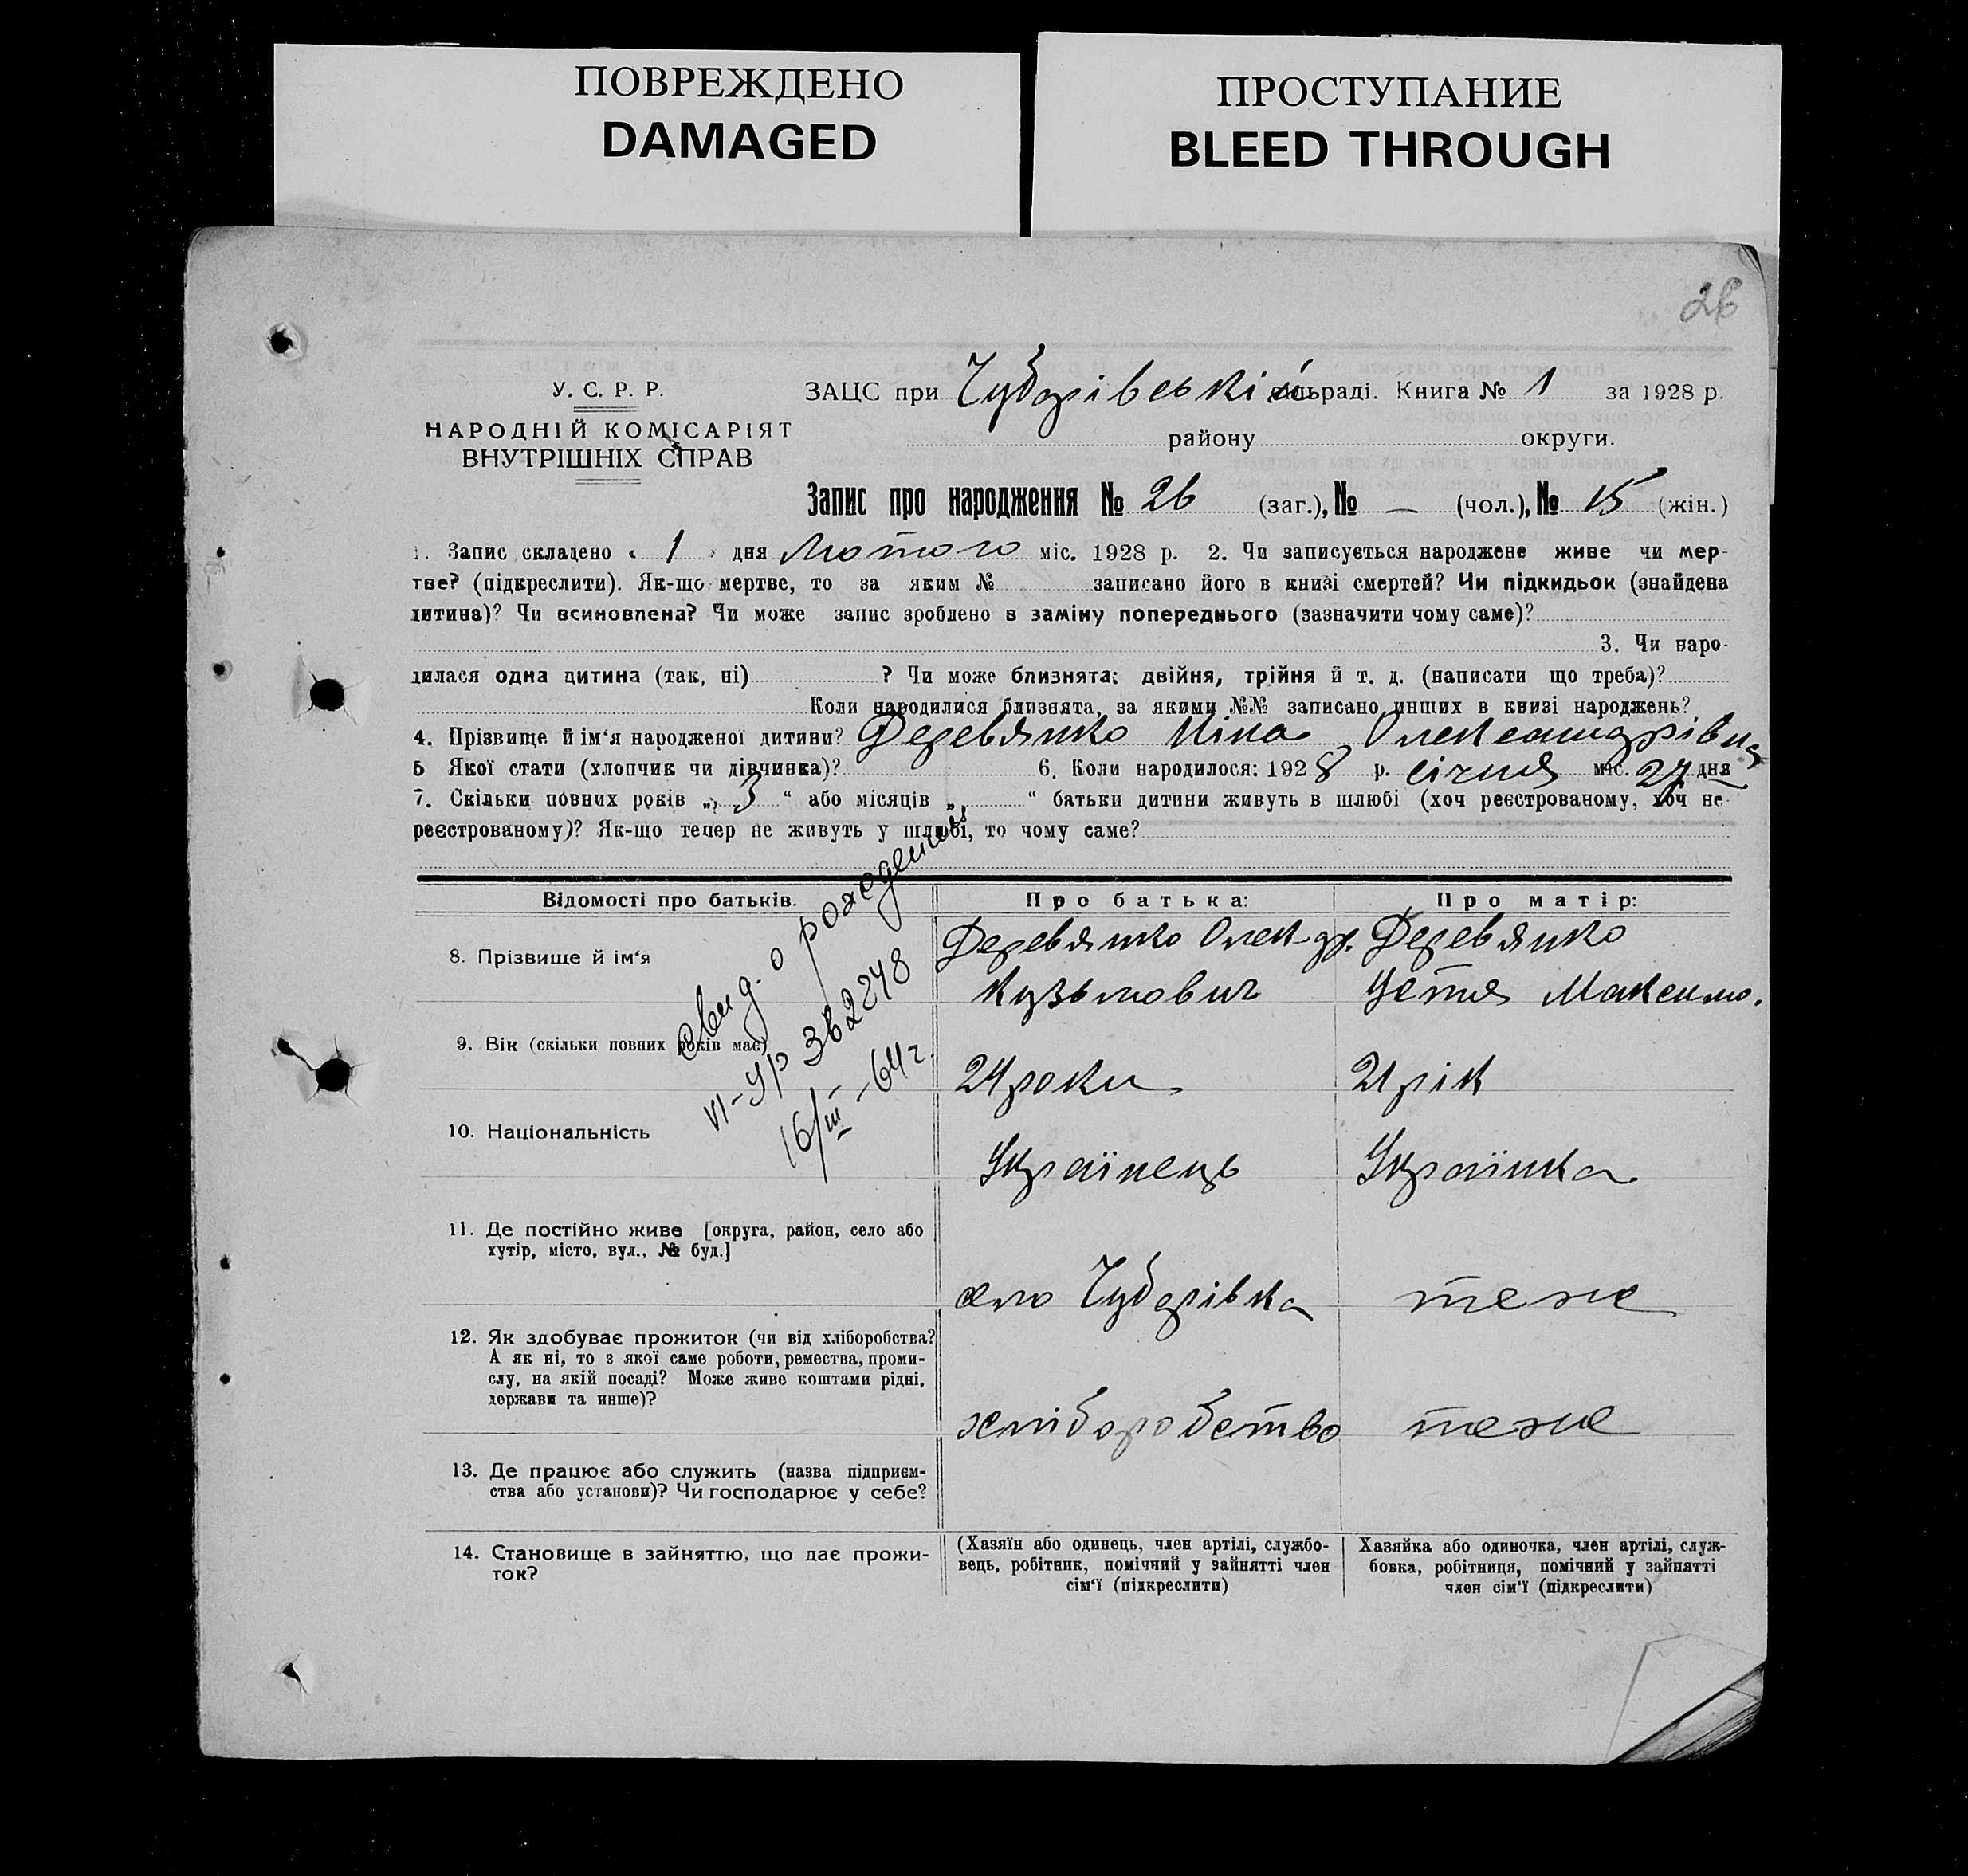 ПОВРЕЖДЕНО
DAMAGED
ПРОСТУПАНИЕ
BLEED THROUGH
26
У. С. Р. Р.
НАРОДНІЙ КОМІСАРІЯТ
ВНУТРІШНІХ СПРАВ
ЗАЦС при Чубарівській сільраді. Книга № 1 за 1928 р.
району округи.
Запис про народження № 26 (заг.), № — (чол.), № 15 (жін.)
1. Запис складено « 1 » дня Лютого міс. 1928 р. 2. Чи записується народжене живе чи мер-
тве? (підкреслити). Як-що мертве, то за яким № записано його в книзі смертей? Чи підкидьок (знайдена
дитина)? Чи всиновлена? Чи може запис зроблено в заміну попереднього (зазначити чому саме)?
3. Чи наро-
дилася одна дитина (так, ні) ? Чи може близнята: двійня, трійня й т. д. (написати що треба)?
Коли народилися близнята, за якими №№ записано инших в книзі народжень?
4. Прізвище й ім'я народженої дитини? Деревянко Ніна Олександрівна
5 Якої стати (хлопчик чи дівчинка)? 6. Коли народилося: 1928 р. січня міс. 27 дня
7. Скільки повних років „ 3 “ або місяців „ “ батьки дитини живуть в шлюбі (хоч реєстрованому, хоч не
реєстрованому)? Як-що тепер не живуть у шлюбі, то чому саме?
Відомості про батьків.
Про батька:
Про матір:
8. Прізвище й ім'я
Деревянко Олек-др.
Кузьмович
Деревянко
Устя Максимо.
свид. о рождении
VI-УР 362248
16/III-64 г.
9. Вік (скільки повних років має)
24 роки
21 рік
10. Національність
Українець
Українка
11. Де постійно живе [округа, район, село або
хутір, місто, вул., № буд.]
село Чубарівка
теже
12. Як здобуває прожиток (чи від хліборобства?
А як ні, то з якої саме роботи, ремества, проми-
слу, на якій посаді? Може живе коштами рідні,
держави та инше)?
хліборобство
теже
13. Де працює або служить (назва підприєм-
ства або установи)? Чи господарює у себе?
14. Становище в зайняттю, що дає прожи-
ток?
(Хазяїн або одинець, член артілі, службо-
вець, робітник, помічний у зайнятті член
сім'ї (підкреслити)
Хазяйка або одиночка, член артілі, служ-
бовка, робітниця, помічний у зайнятті
член сім'ї (підкреслити)